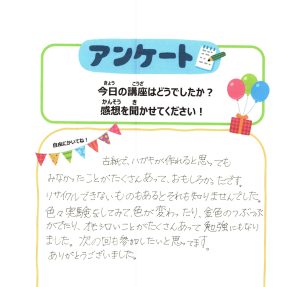 アンケート
きょう こうざ
今日の講座はどうでしたか？
かんそう き
感想を聞かせてください！
自由にかいてね！
古紙で、ハガキが作れると思っても
みなかったことがたくさんあって、おもしろかったです。
リサイクルできないものもあるとそれも知りませんでした。
色々実験をしてみて色が変わったり、金色のつぶつぶ
がでたり、オモシロいことがたくさんあって勉強にもなり
ました。次の回も参加したいと思ってます。
ありがとうございました。